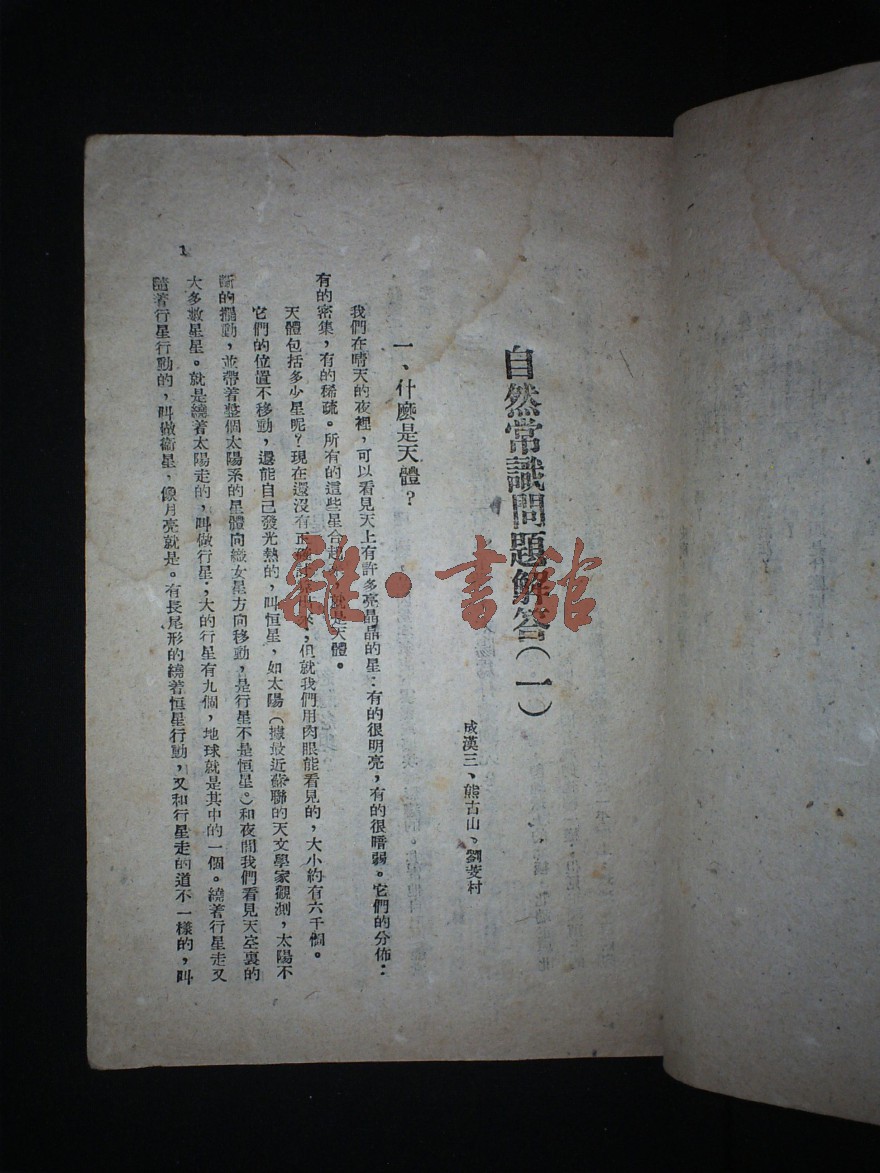 自然常識問題解答（一）
成漢三、熊古山、劉茭村
一、什麼是天體？
我們在晴天的夜裡，可以看見天上有許多亮晶晶的星：有的很明亮，有的很暗弱。它們的分佈：
有的密集，有的稀疏。所有的這些星合起，就是天體。
天體包括多少星呢？現在還沒有正確計出來，但就我們用肉眼能看見的，大小約有六千個。
它們的位置不移動，還能自己發光熱的，叫恒星，如太陽（據最近蘇聯的天文學家觀測，太陽不
斷的擺動，並帶着整個太陽系的星體向織女星方向移動，是行星不是恒星。）和夜間我們看見天空裏的
大多數星星。就是繞着太陽走的，叫做行星；大的行星有九個，地球就是其中的一個。繞着行星走又
隨着行星行動的，叫做衛星，像月亮就是。有長尾形的繞着恒星行動，又和行星走的道不一樣的，叫
1
雜·書館